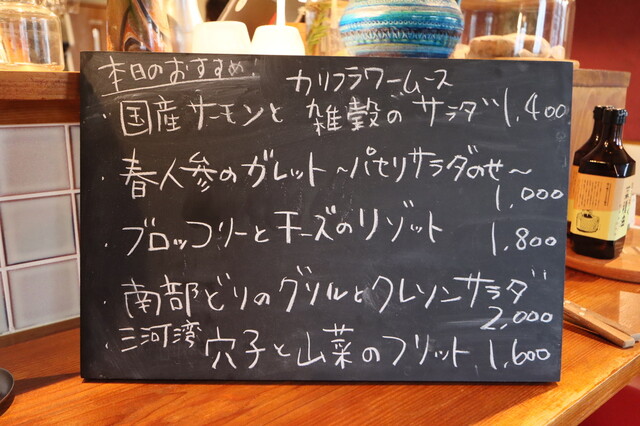 本日のおすすめ!
カリフラワームース
・国産サーモンと雑穀のサラダ 1,400
・春人参のガレット〜パセリサラダのせ〜
1,000
・ブロッコリーとチーズのリゾット 1,800
・南部どりのグリルとクレソンサラダ
2,000
・三河湾穴子と山菜のフリット 1,600